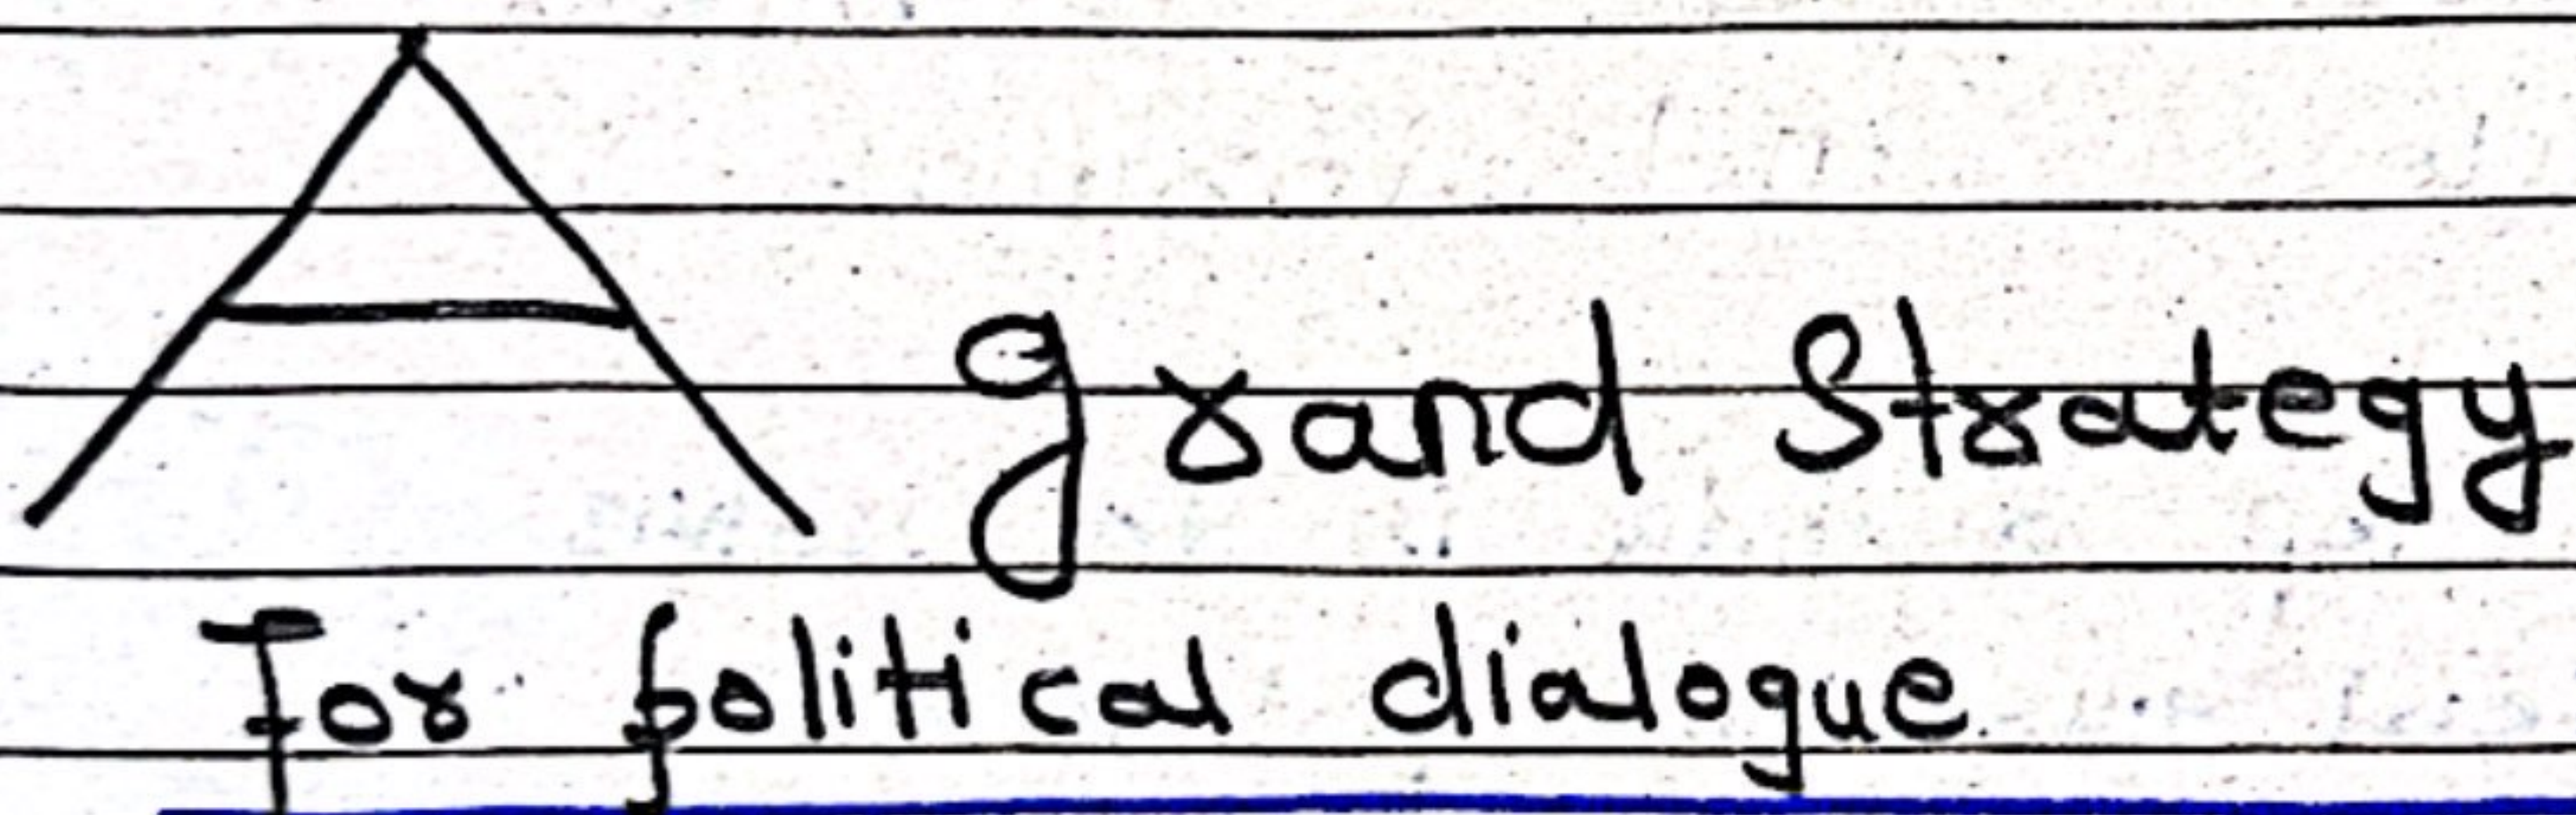 A grand Strategy
For political dialogue.